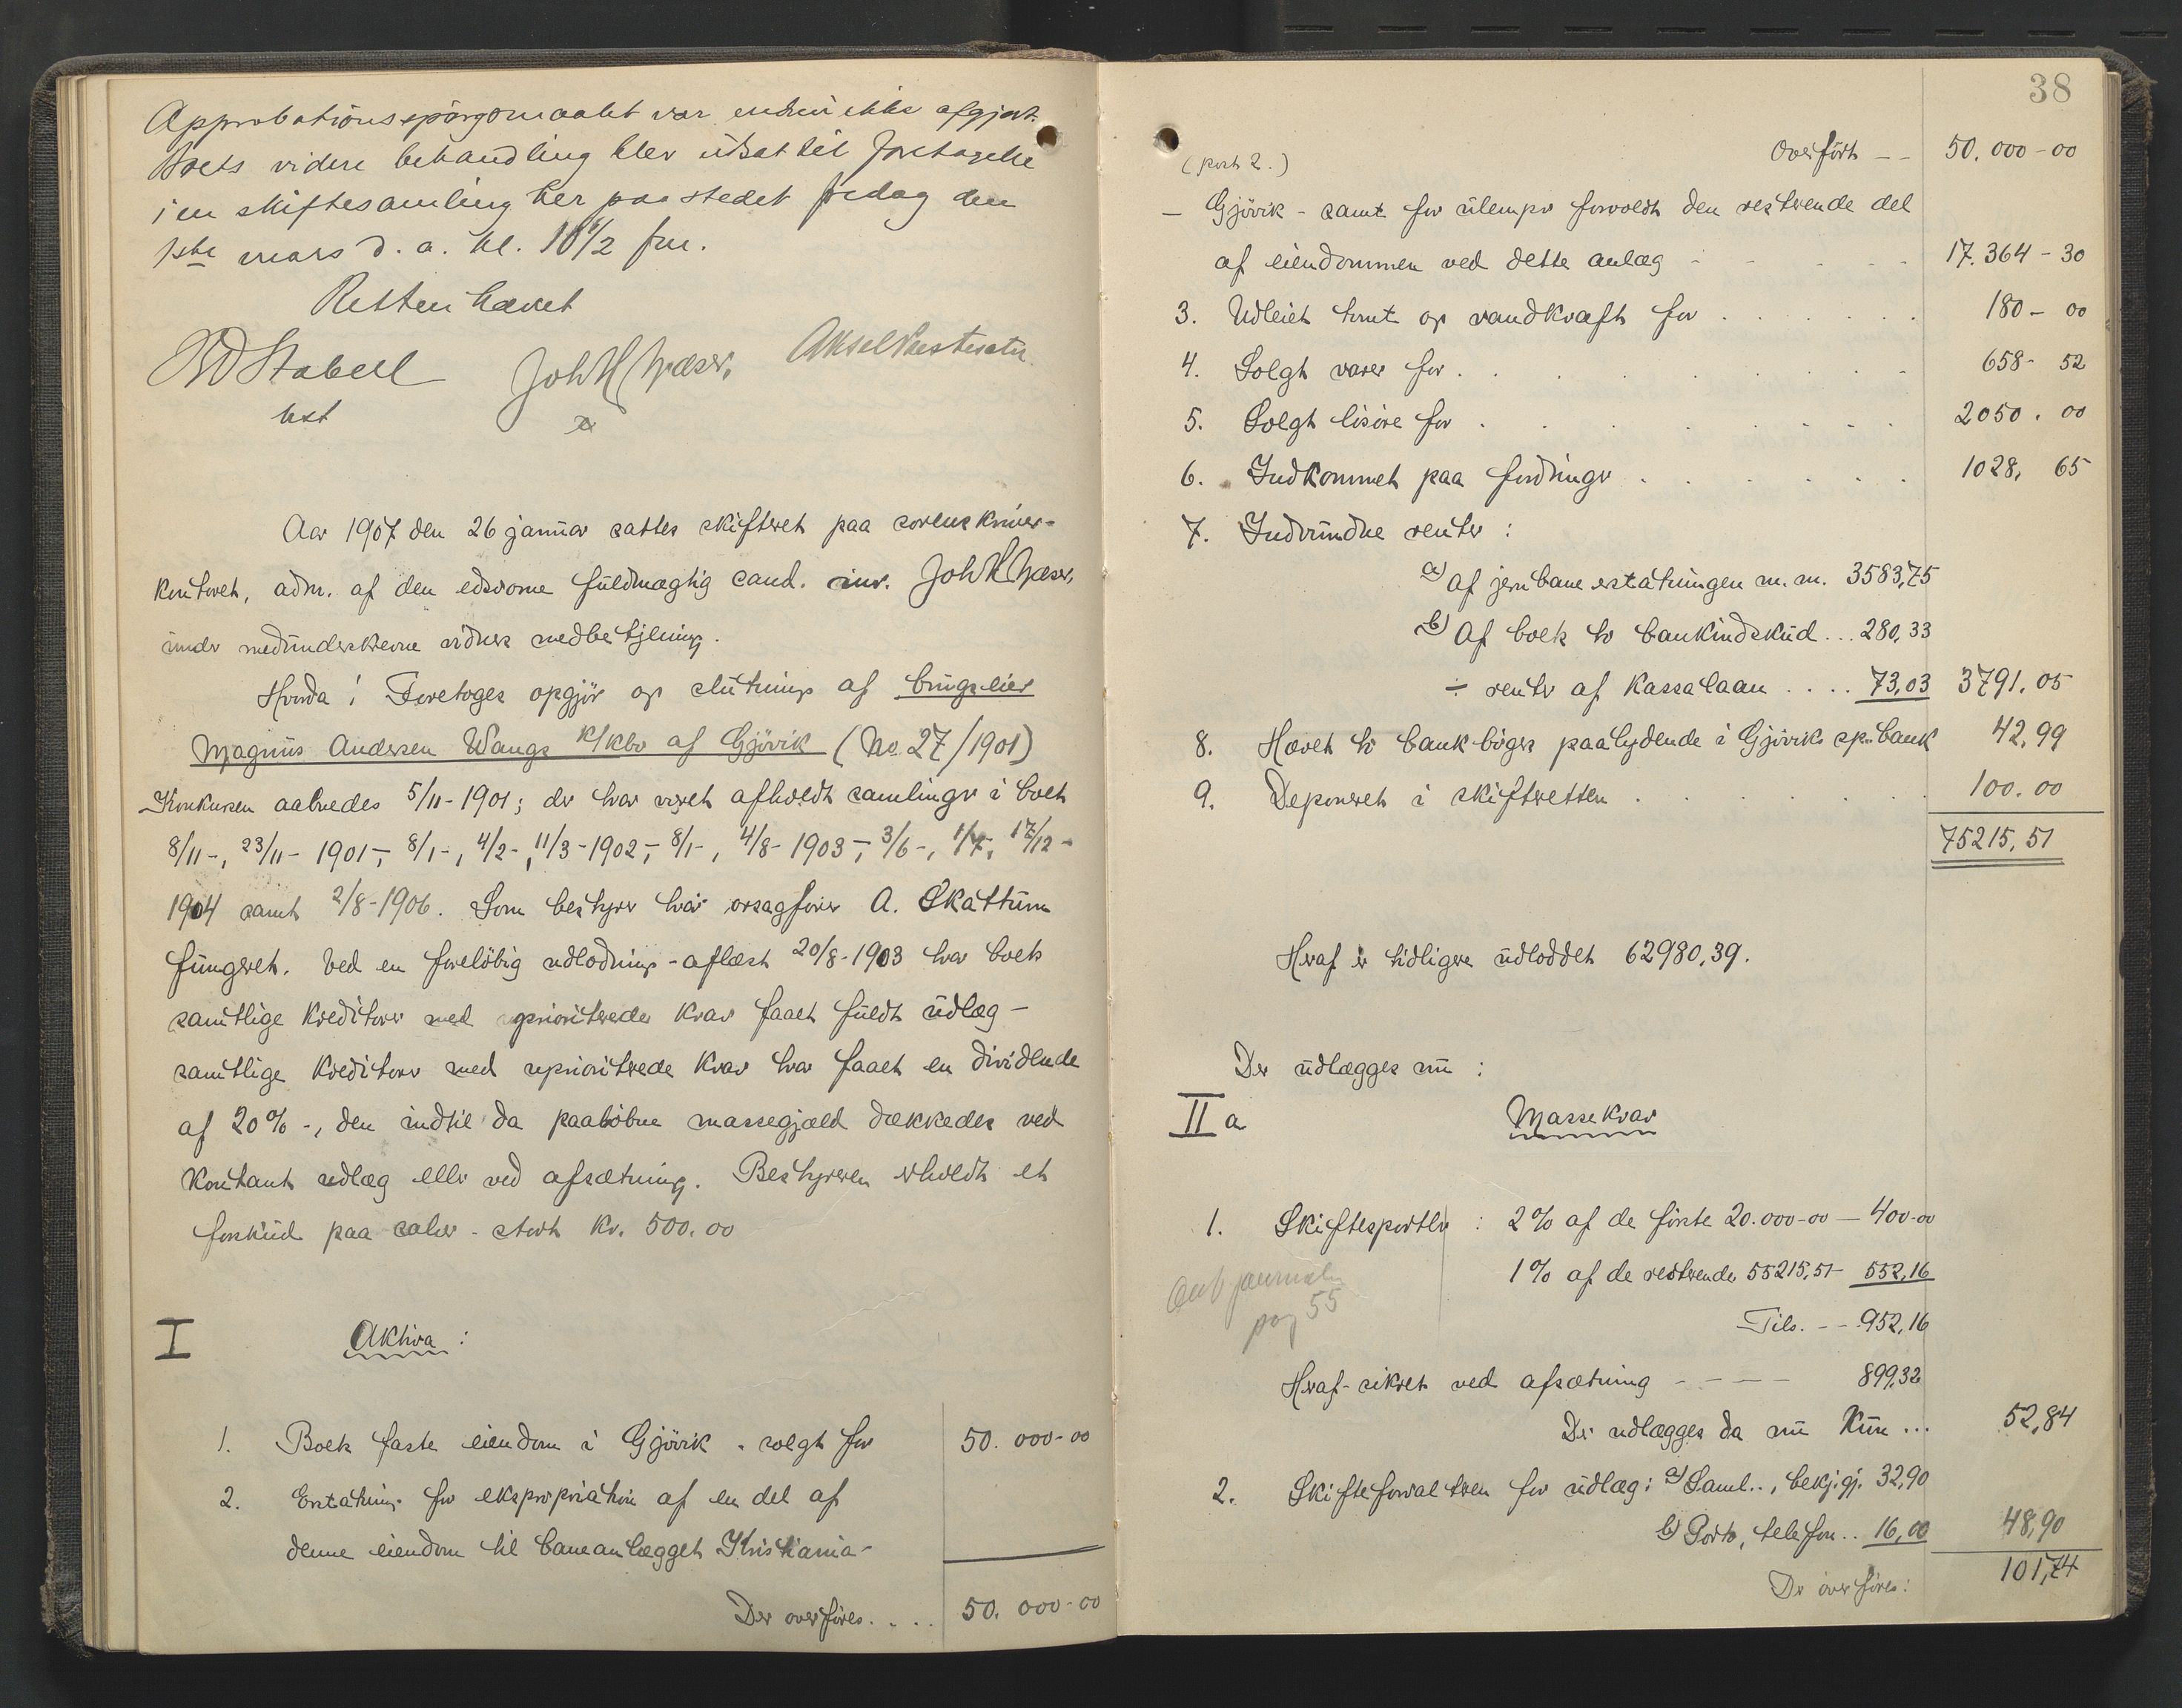 Approbationsspørgsmaalet var endnu ikke afgjort.
Boets videre behandling blev udsat til foretagelse
i en skiftesamling her paa stedet fredag den
1ste mars d. a. kl. 10 1/2 fm.
Retten hævet
Stabell
bst
Joh H Næser,
Aar 1907 den 26 januar sattes skifteret paa sorenskriver-
kontoret, adm. af den edsvorne fuldmægtig cand. jur. Joh H Næser,
under medunderskrevne vidners medbetjening.
Hvorda: Foretoges opgjør og slutning af brugseier
Magnus Andersen Wangs k/kbo af Gjøvik (No. 27/1901)
Konkursen aabnedes 5/11-1901; der har været afholdt samlinger i boet
8/11-, 23/11- 1901-, 8/1-, 4/2-, 11/3-1902-, 8/1-, 4/8- 1903-, 3/6-, 1/7-, 17/12-
1904 samt 2/8-1906. Som bestyrer har orsagfører A. Skattum
fungeret. Ved en foreløbig udlodning - aflæst 20/8-1903 har boets
samtlige kreditorer med prioriterede krav faaet fuldt udlæg -
samtlige kreditorer med uprioriterede krav har faaet en dividende
af 20% -, den indtil da paaløbne massegjæld dækkedes ved
kontant udlæg eller ved afsætning. Bestyreren erholdt et
forskud paa salær - stort kr. 500.00
I Aktiva:
1. Boets faste eiendom i Gjøvik - solgt for 50.000-00
2. Erstatning for ekspropriation af en del af
denne eiendom til baneanlægget Kristiania-
Der overføres.... 50.000-00
38
(post 2.) Overført -- 50.000-00
- Gjøvik - samt for ulemper forvoldt den resterende del
af eiendommen ved dette anlæg 17.364-30
3. Udleiet tomt og vandkraft for 180-00
4. Solgt varer for 658-52
5. Solgt løsøre for 2050.00
6. Indkommet paa fordringer 1028,65
7. Indvundne renter:
a) af jernbaneerstatningen m. m. 3583,75
b) Af boets to bankindskud... 280,33
÷ renter af kassalaan.... 73,03 3791.05
8. Hævet to bankbøger paalydende i Gjøviks sp.bank 42,99
9. Deponeret i skifteretten 100.00
75215,51
Heraf er tidligere udloddet 62980,39.
Der udlægges nu:
II a Massekrav
1. Skiftesportler: 2% af de første 20.000-00 - 400-00
1% af de resterende 55215,51 - 552,16
journalen
pag 55
Tils. -- 952,16
Heraf - sikret ved afsætning ---- 899,32
Der udlægges da nu kun... 52,84
2. Skifteforvalteren for udlæg: a) Saml.., bekj.gj. 32,90
b) Porto, telefon.. 16,00 48,90
Der overføres: 101,74